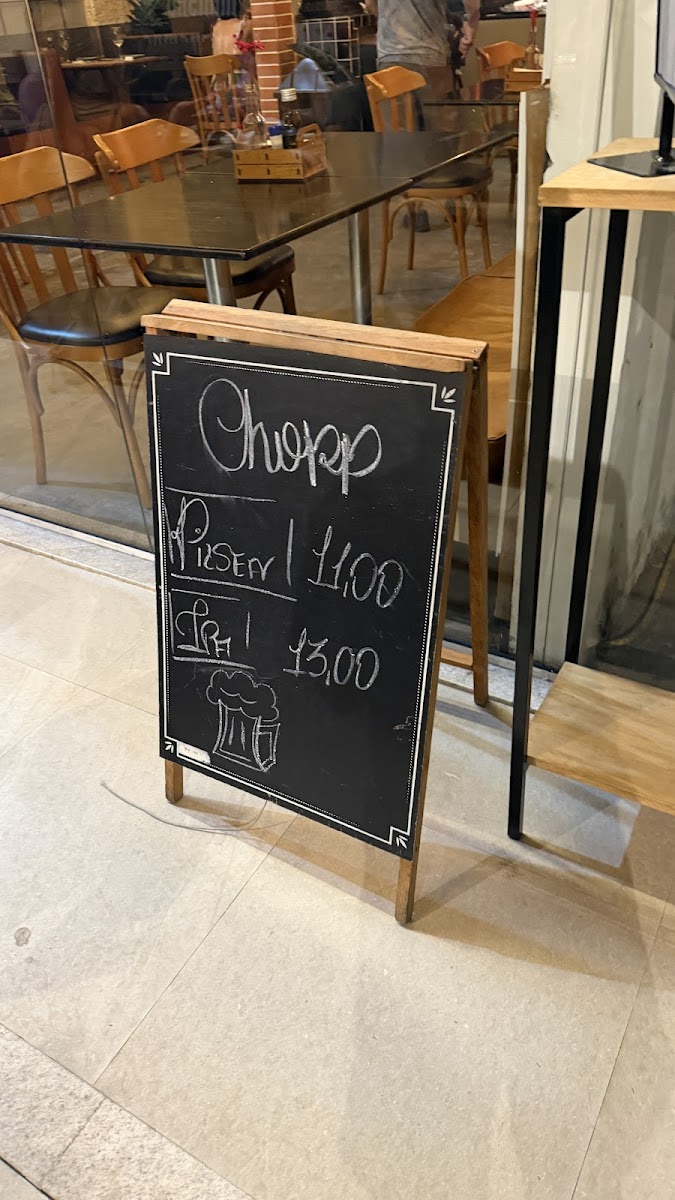 Chopp
Pilsen 11,00
IPA 13,00